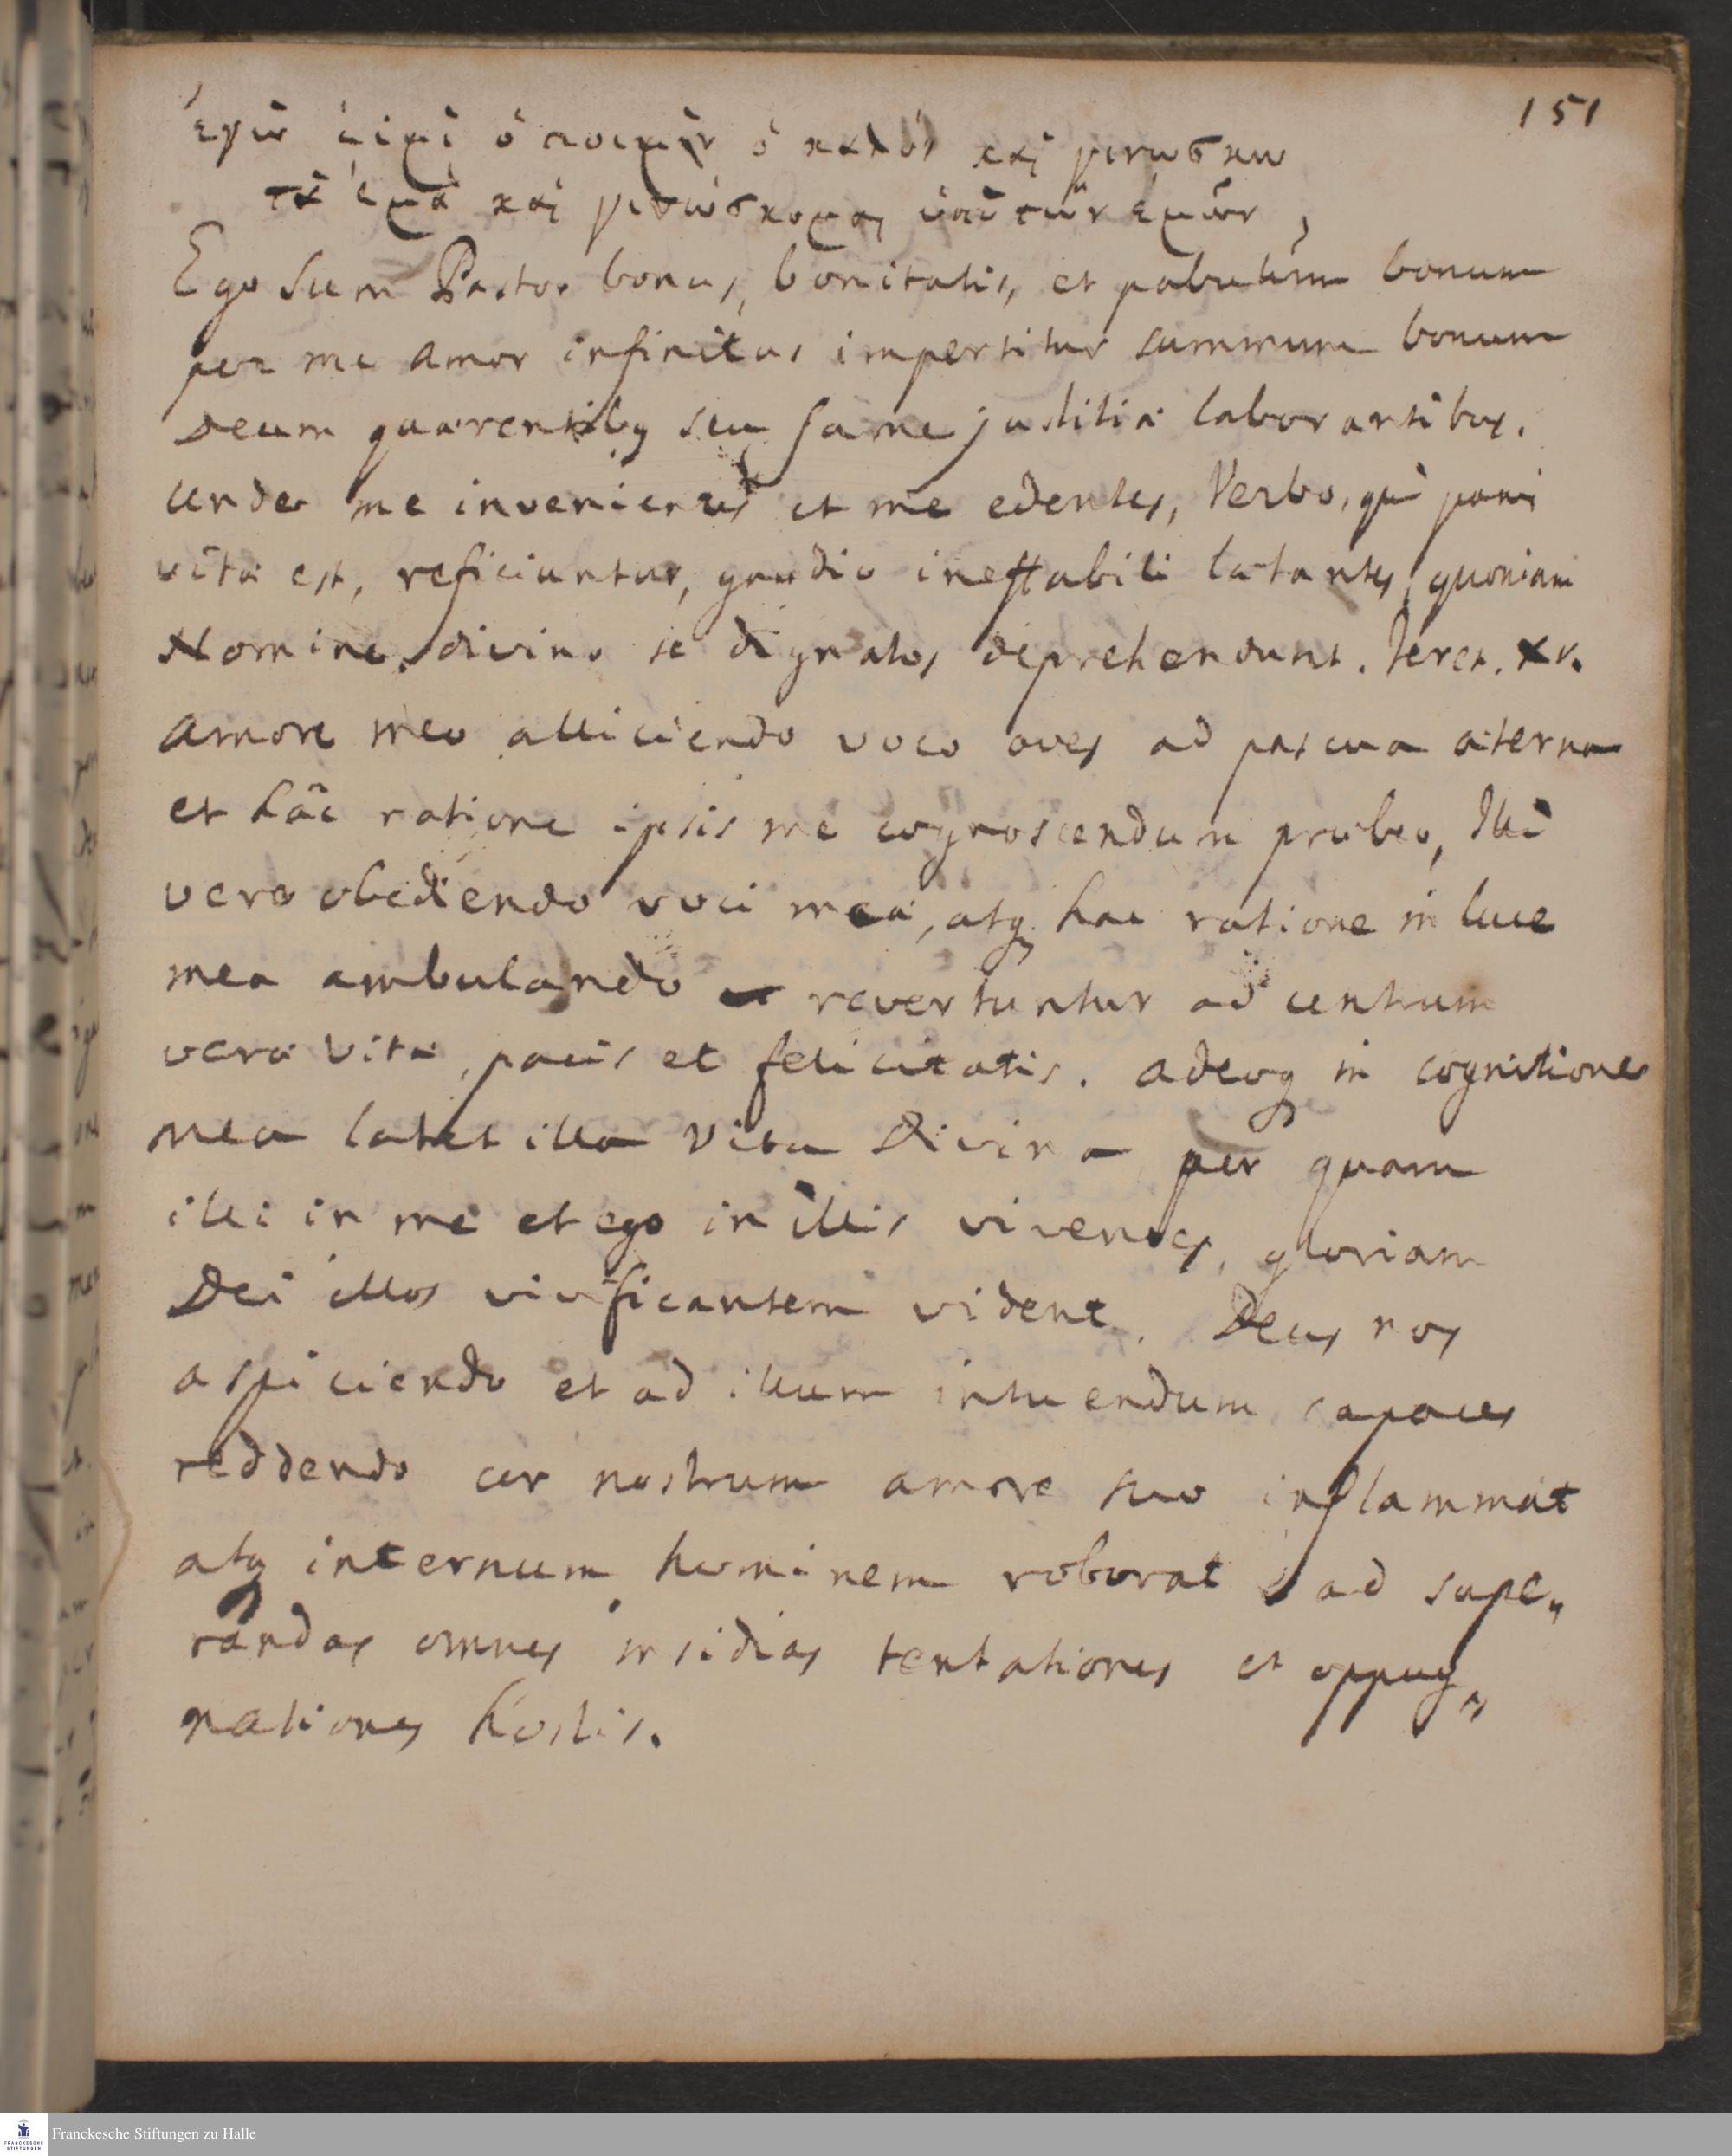 151
ἐγώ εἰμὶ ὁ ποιμὴν ὁ καλός καὶ γινώσκω
τὰ ἐμὰ καὶ γινώσκομαι ὑπὸ τῶν ἐμῶν,
Ego sum Pastor bonus, bonitatis, et pabulum bonum
per me amor infinitus impertitur summum bonum
Deum quærentibq seu fame justitiæ laborantibus.
unde me invenientes et me edentes, Verbo, qui panis
vitæ est, reficiuntur, gaudio ineffabili lætantes, quoniam
Nomine divino se dignatos deprehendunt. Jerem. XV.
amore meo alliciendo voco oves ad pascua æterna
et hâc ratione ipsis me cognoscendum præbeo, Illi
vero obediendo voci meæ, atq hac ratione in luce
mea ambulando revertuntur ad centrum
veræ vitæ, pacis et felicitatis. adeoq in cognitione
mea latet illa vita Divina per quam
illi in me et ego in illis viventes, gloriam
Dei illos vivificantem vident. Deus nos
aspiciendo et ad illum intuendum capaces
reddendo cor nostrum amore suo inflammat
atq internum hominem roborat ad supe„
randas omnes insidias tentationes et oppug„
nationes hostis.
Franckesche Stiftungen zu Halle
FRANCKESCHE
STIFTUNGEN